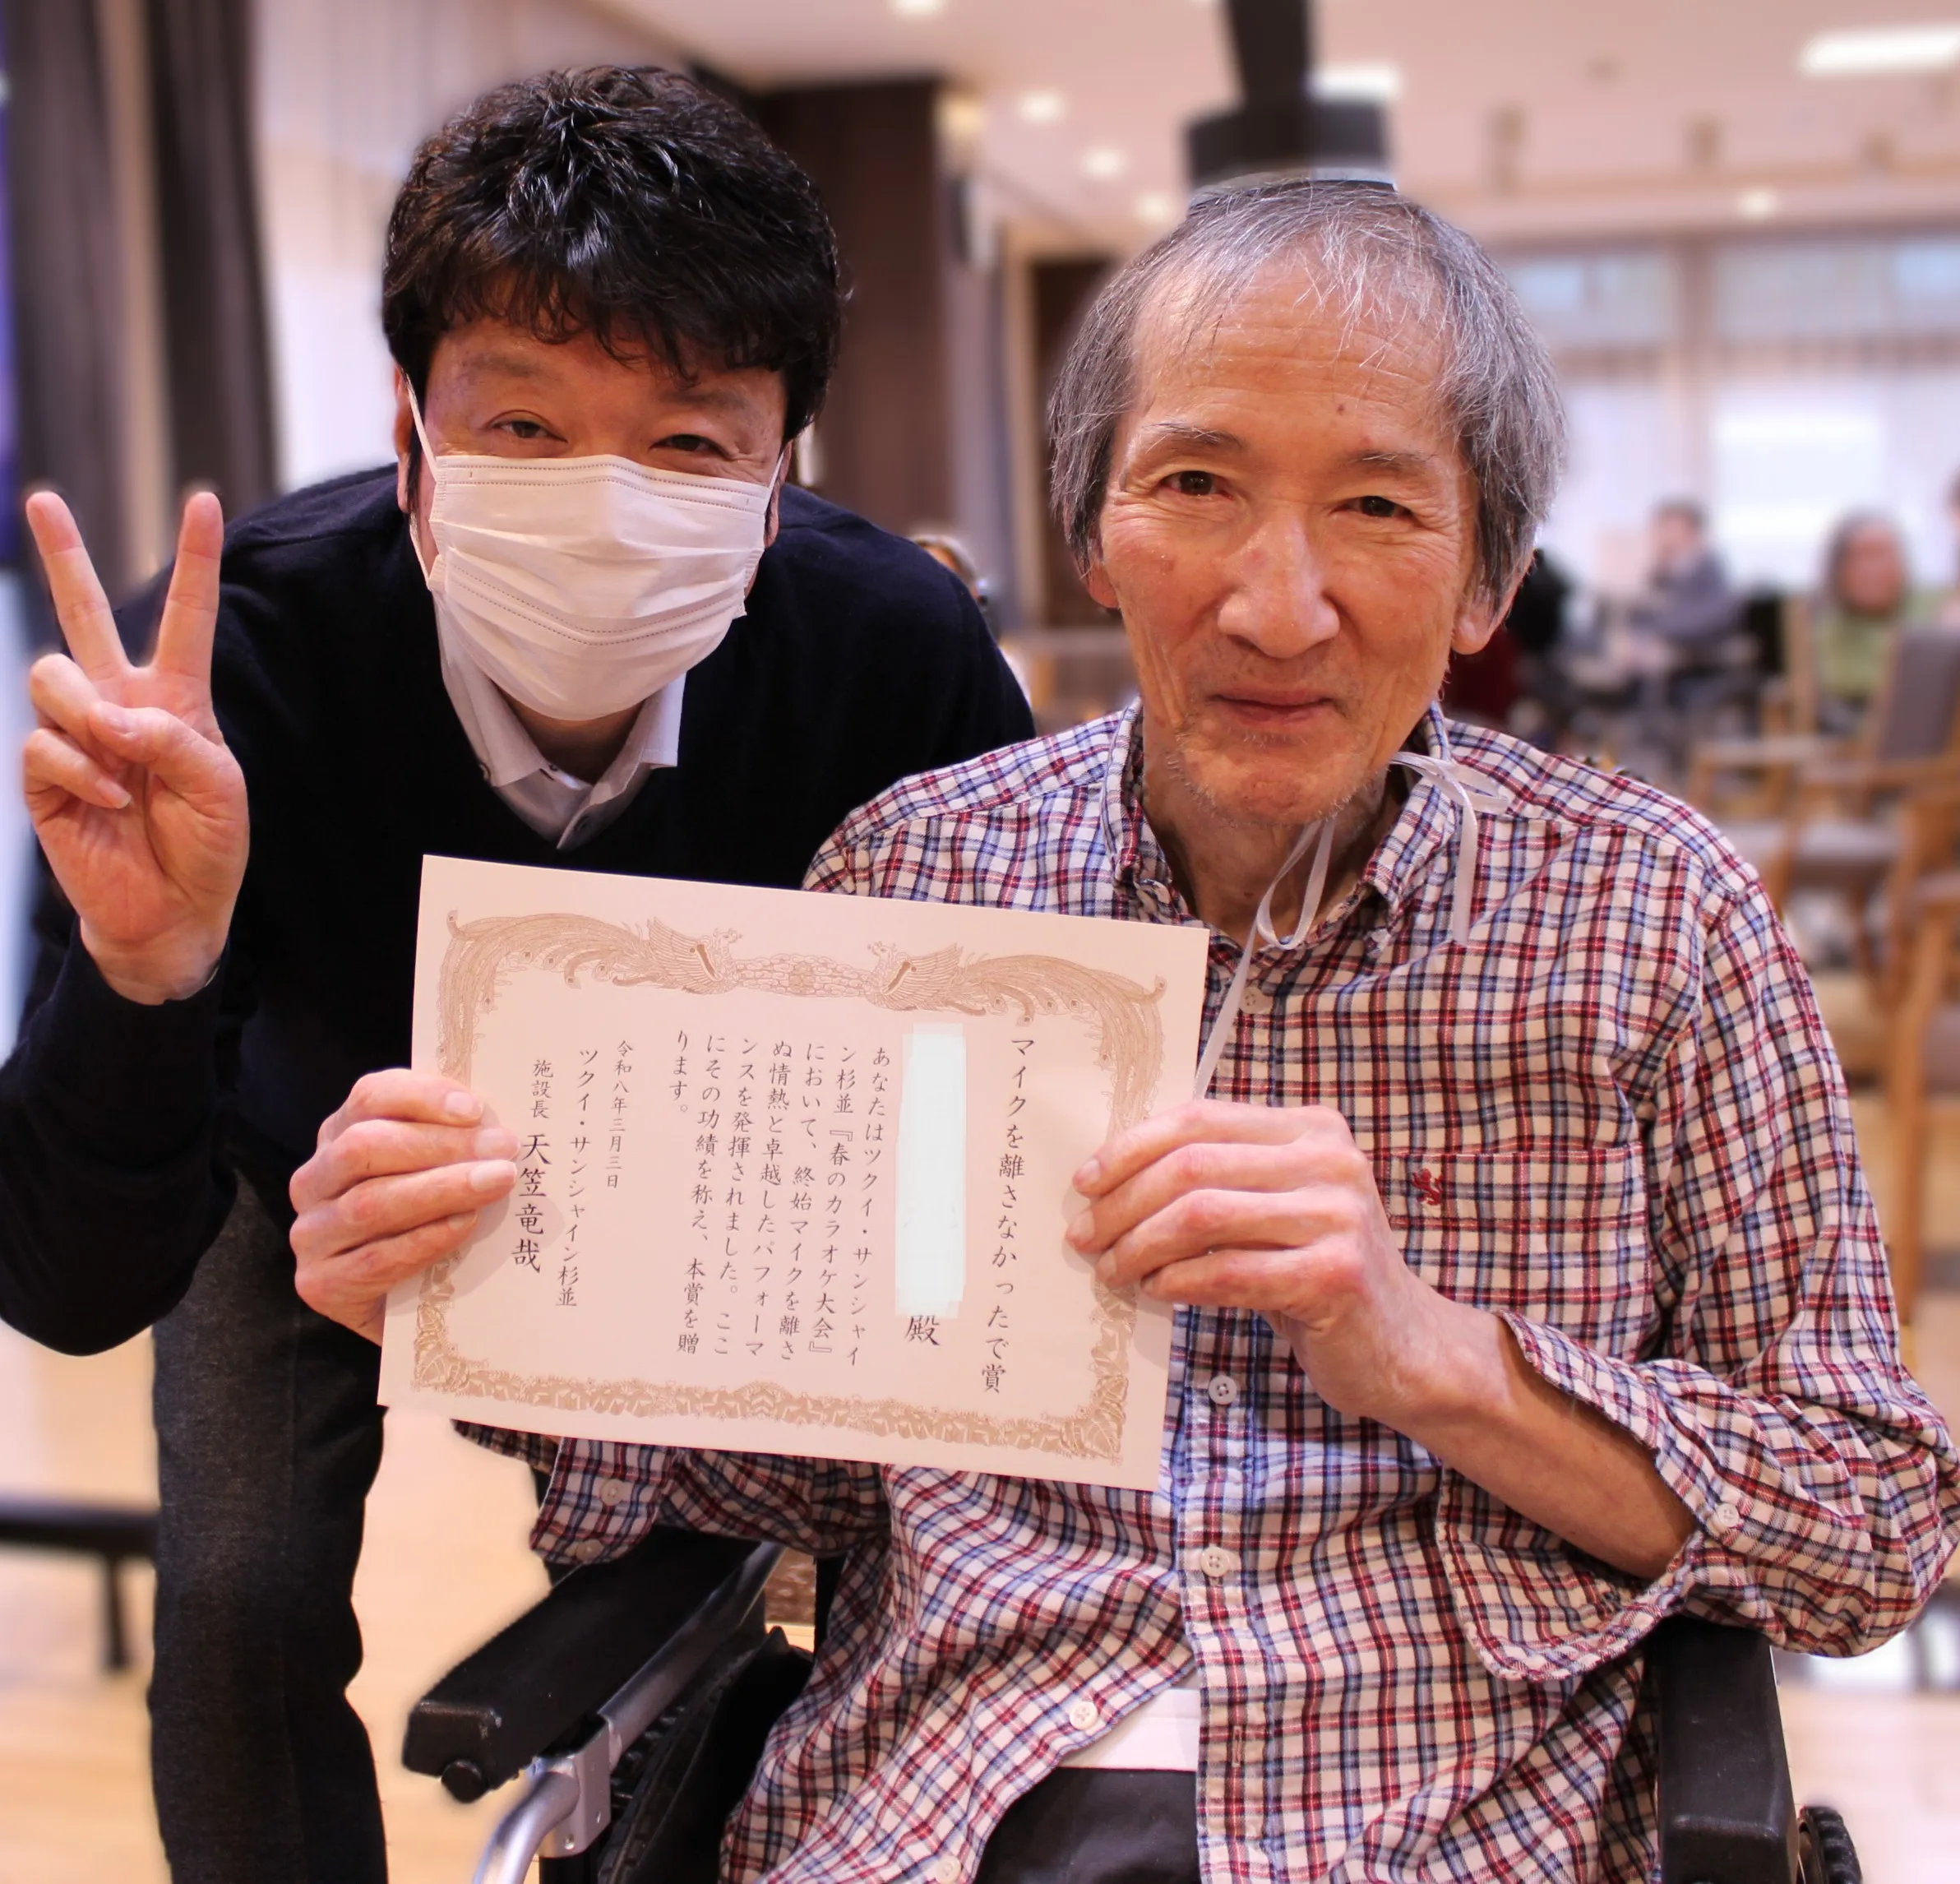 マイクを離さなかったで賞
殿
あなたはツクイ・サンシャイ
ン杉並『春のカラオケ大会』
において、終始マイクを離さ
ぬ情熱と卓越したパフォーマ
ンスを発揮されました。ここ
にその功績を称え、本賞を贈
ります。
令和八年三月三日
ツクイ・サンシャイン杉並
施設長 天笠竜哉